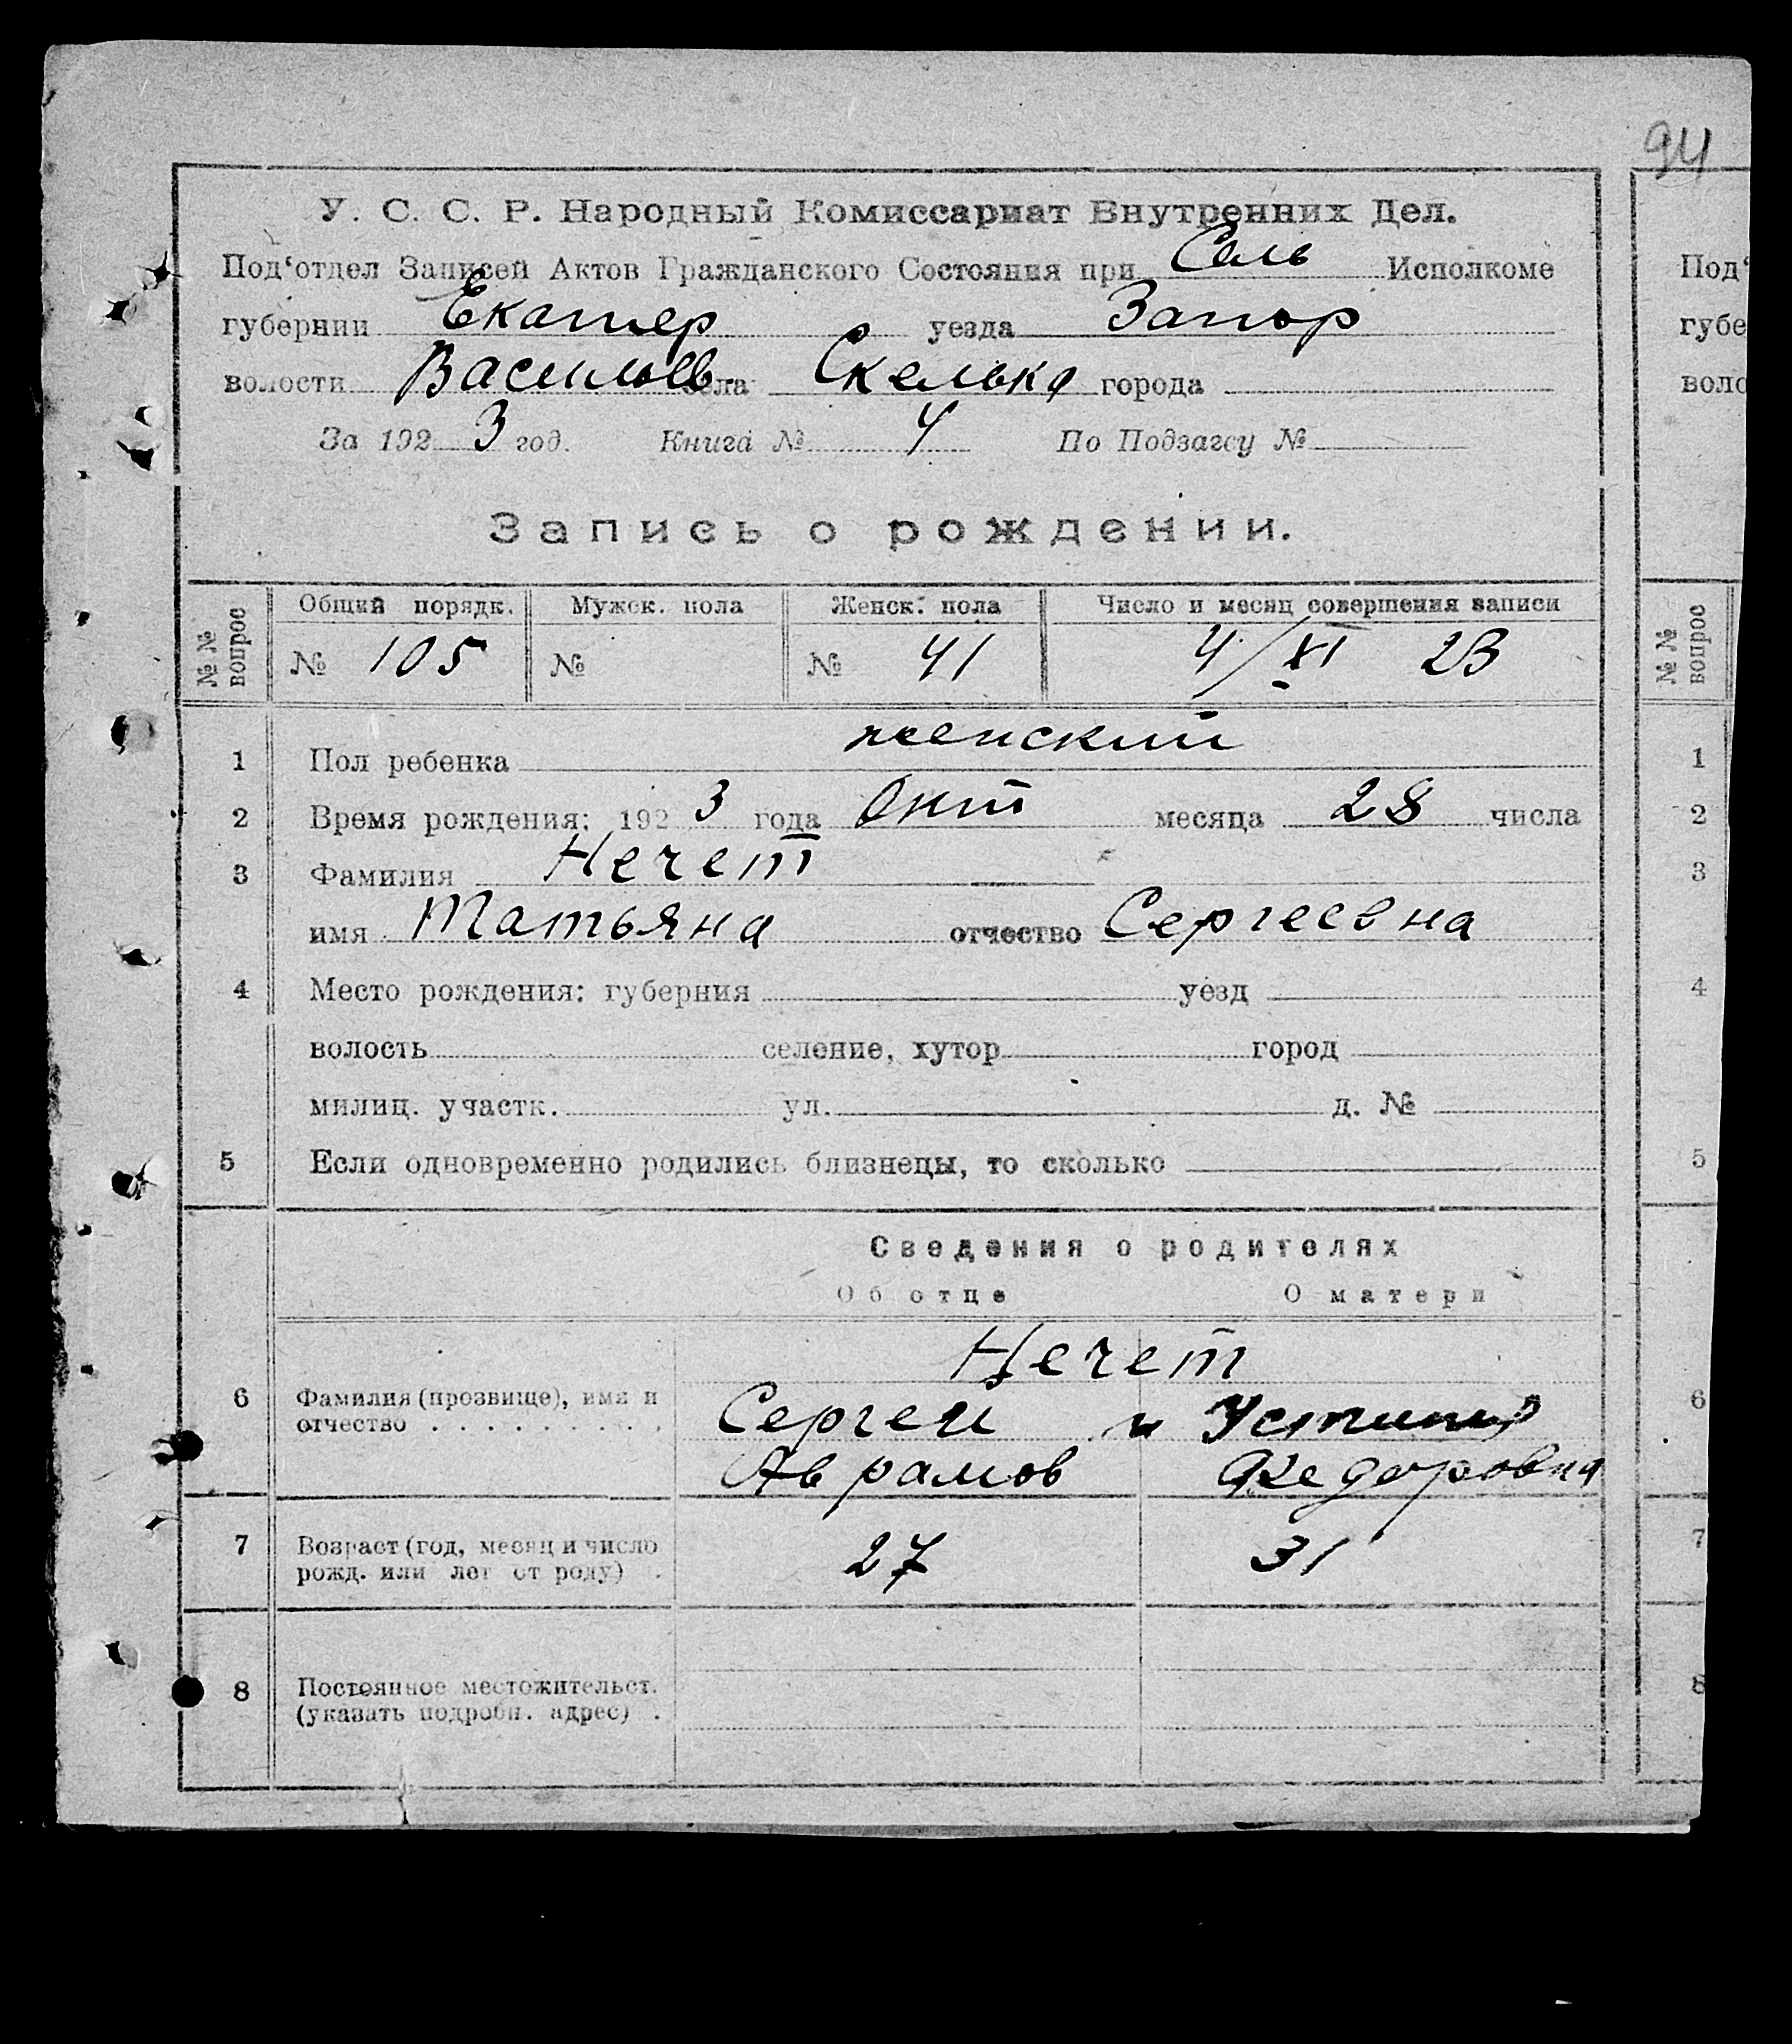 94
У. С. С. Р. Народный Комиссариат Внутренних Дел.
Под‘отдел Записей Актов Гражданского Состояния при Сель Исполкоме
губернии Екатер уезда Запор
волости Васильев. села Скелька города
За 192 3 год. Книга № 4 По Подзагсу №
Запись о рождении.
№ № вопрос Общий порядк. Мужск. пола Женск. пола Число и месяц совершения записи
№ 105 № № 41 4/XI 23
1 Пол ребенка женский
2 Время рождения: 192 3 года Окт месяца 28 числа
3 Фамилия Нечет
имя Татьяна отчество Сергеевна
4 Место рождения: губерния уезд
волость селение, хутор город
милиц. участк. ул. д. №
5 Если одновременно родились близнецы, то сколько
Сведения о родителях
Об отце О матери
Нечет
6 Фамилия (прозвище), имя и Сергей и Устиния
отчество . . . . . . . . . . Аврамов Федоровна
7 Возраст (год, месяц и число 27 31
рожд. или лет от роду) .
8 Постоянное местожительст.
(указать подробн. адрес) .
Под‘
губе
воло
№ № вопрос
1
2
3
4
5
6
7
8